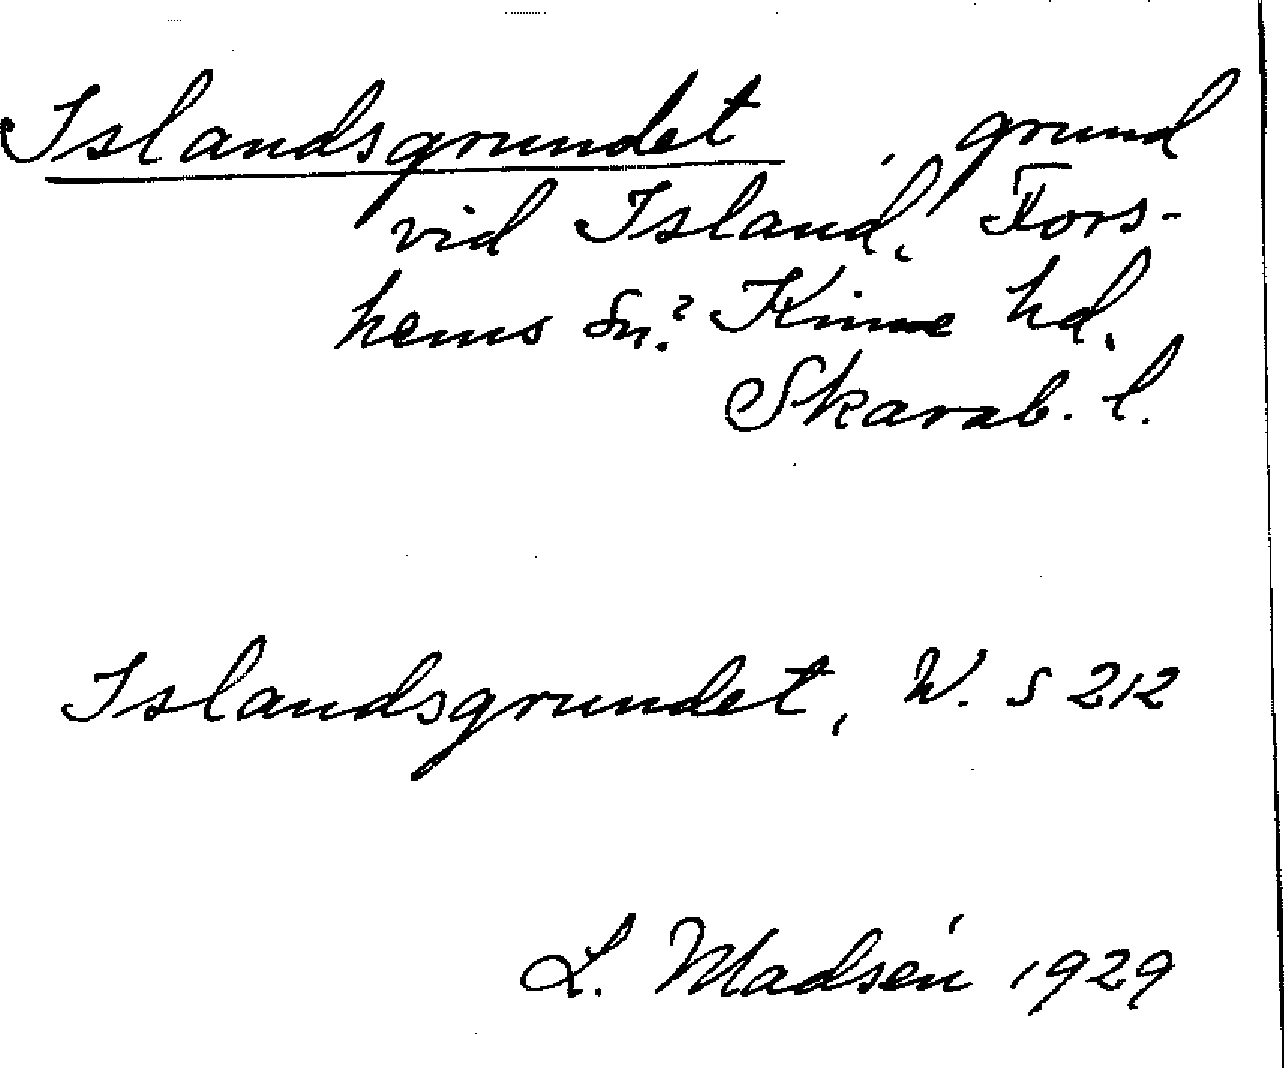 Islandsgrundet, grund
vid Island, Fors-
hems sn.? Kinne hd.
Skarab. l.
Islandsgrundet, W. S 212
L. Madsén 1929